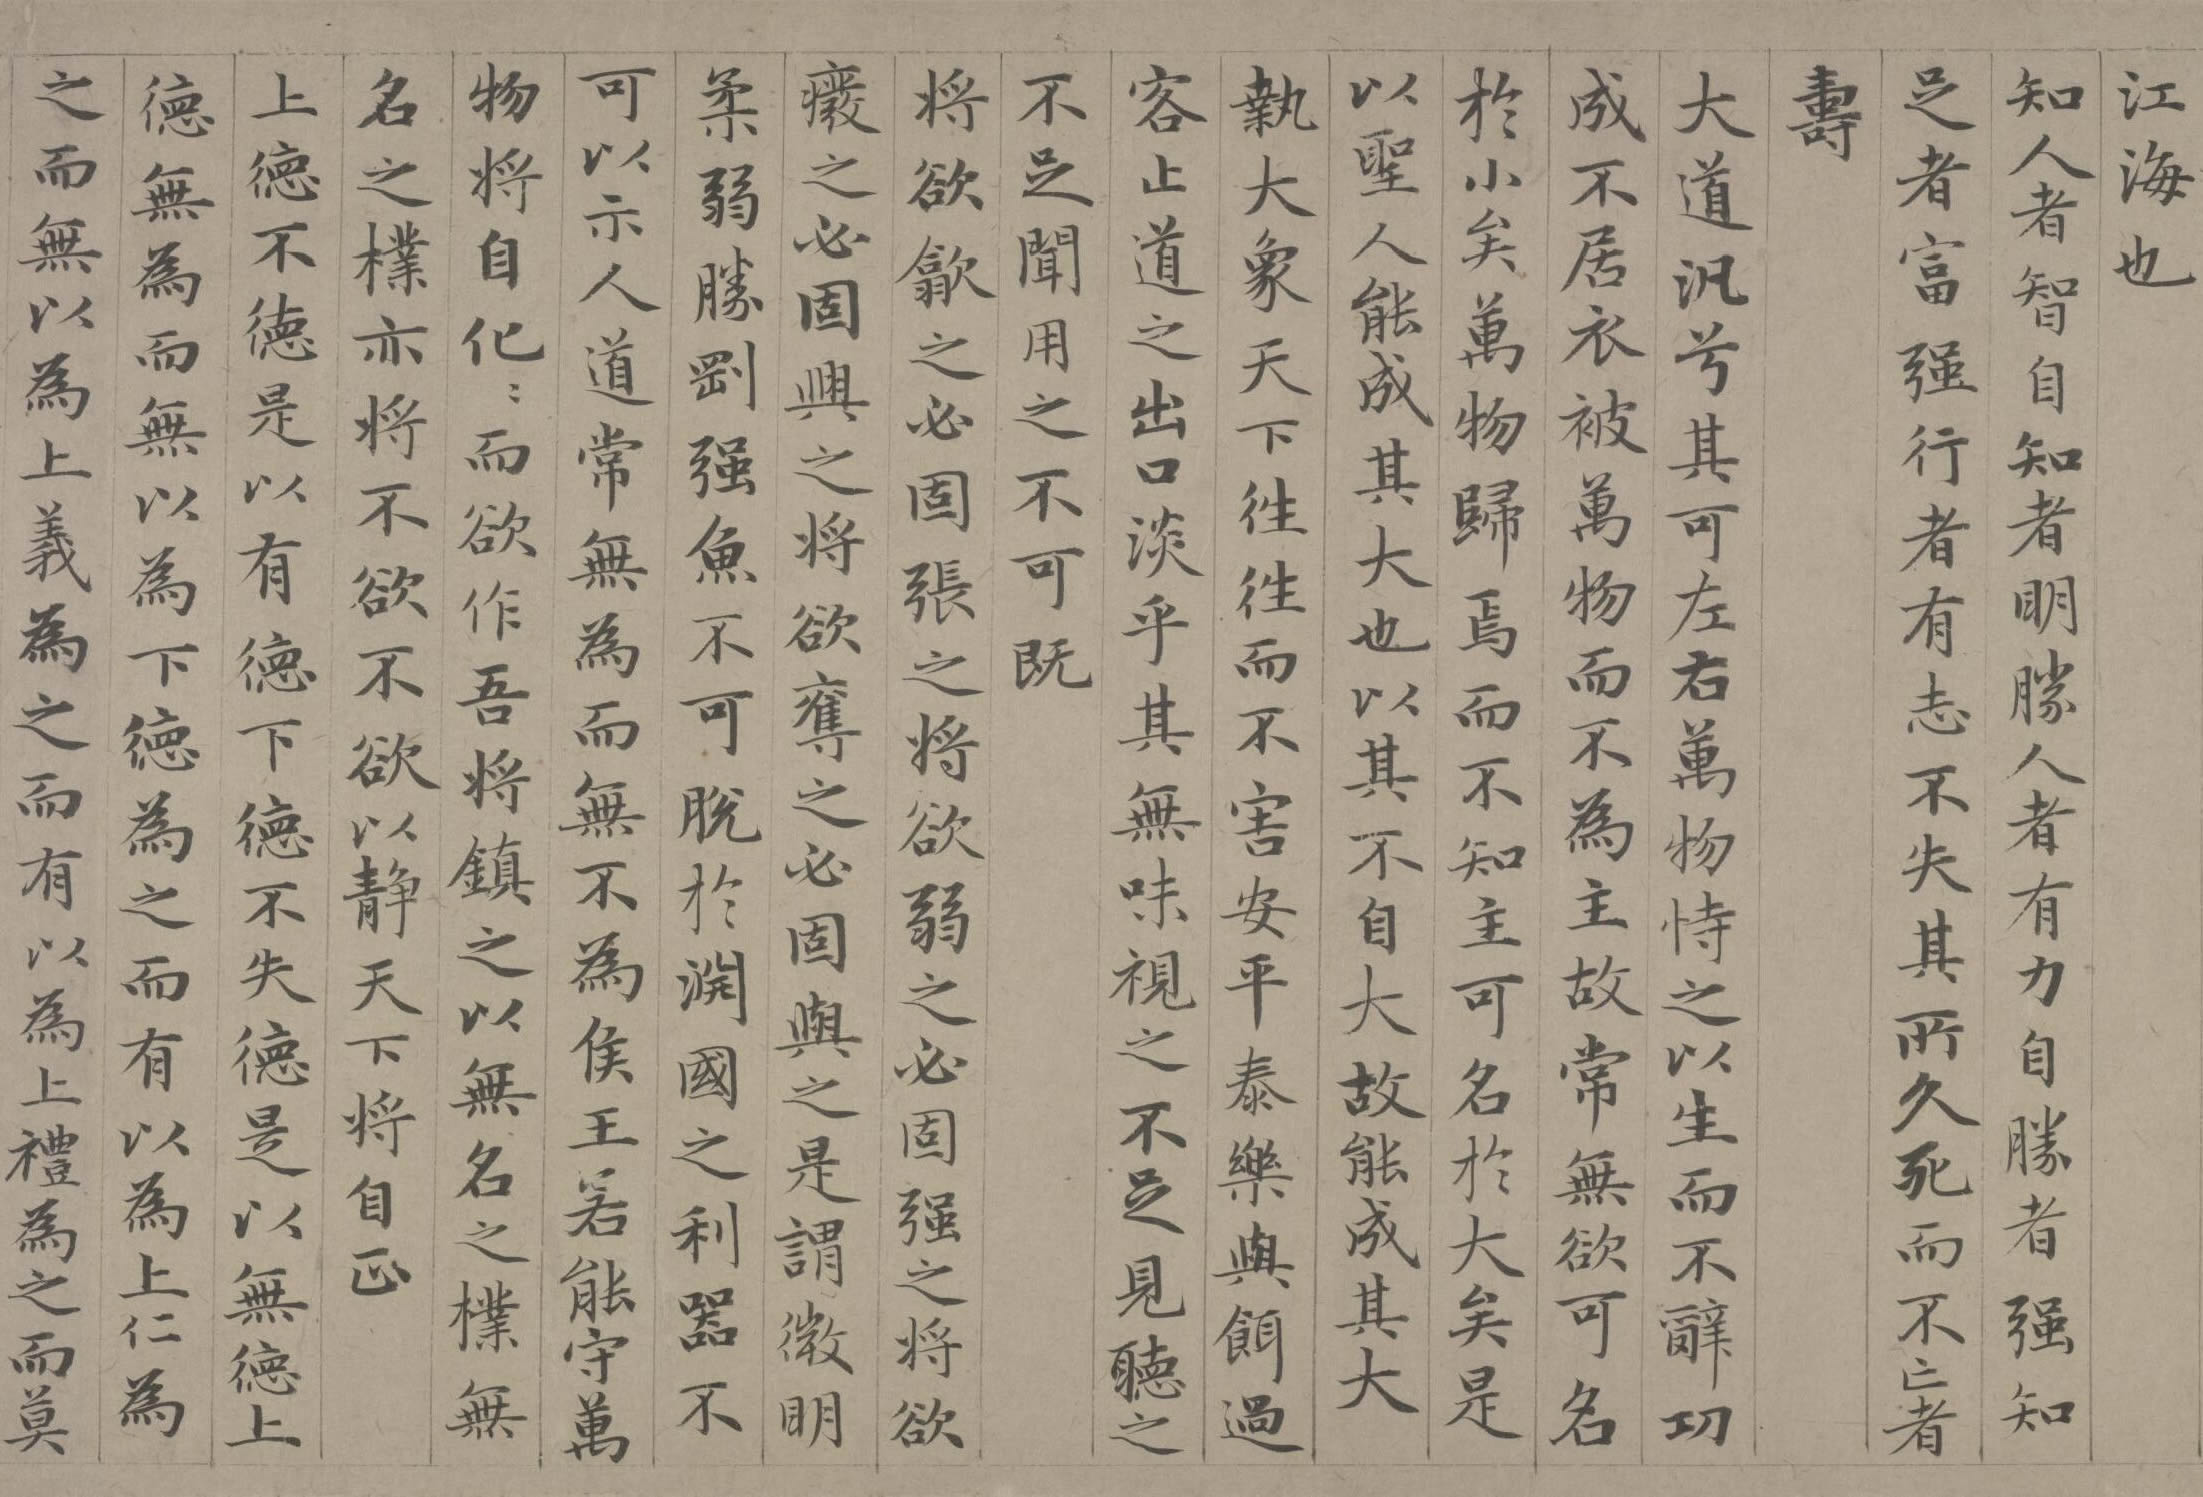 江海也
知人者智自知者明勝人者有力自勝者强知
足者富强行者有志不失其所久死而不亡者
壽
大道汎兮其可左右萬物恃之以生而不辭功
成不居衣被萬物而不為主故常無欲可名
於小矣萬物歸焉而不知主可名於大矣是
以聖人能成其大也以其不自大故能成其大
執大象天下往往而不害安平泰樂與餌過
客止道之出口淡乎其無味視之不足見聽之
不足聞用之不可既
将欲歙之必固張之将欲弱之必固强之将欲
癈之必固興之将欲奪之必固與之是謂微明
柔弱勝剛强魚不可脫於淵國之利器不
可以示人道常無為而無不為侯王若能守萬
物将自化〻而欲作吾将鎮之以無名之樸無
名之樸亦将不欲不欲以静天下将自正
上德不德是以有德下德不失德是以無德上
德無為而無以為下德為之而有以為上仁為
之而無以為上義為之而有以為上禮為之而莫